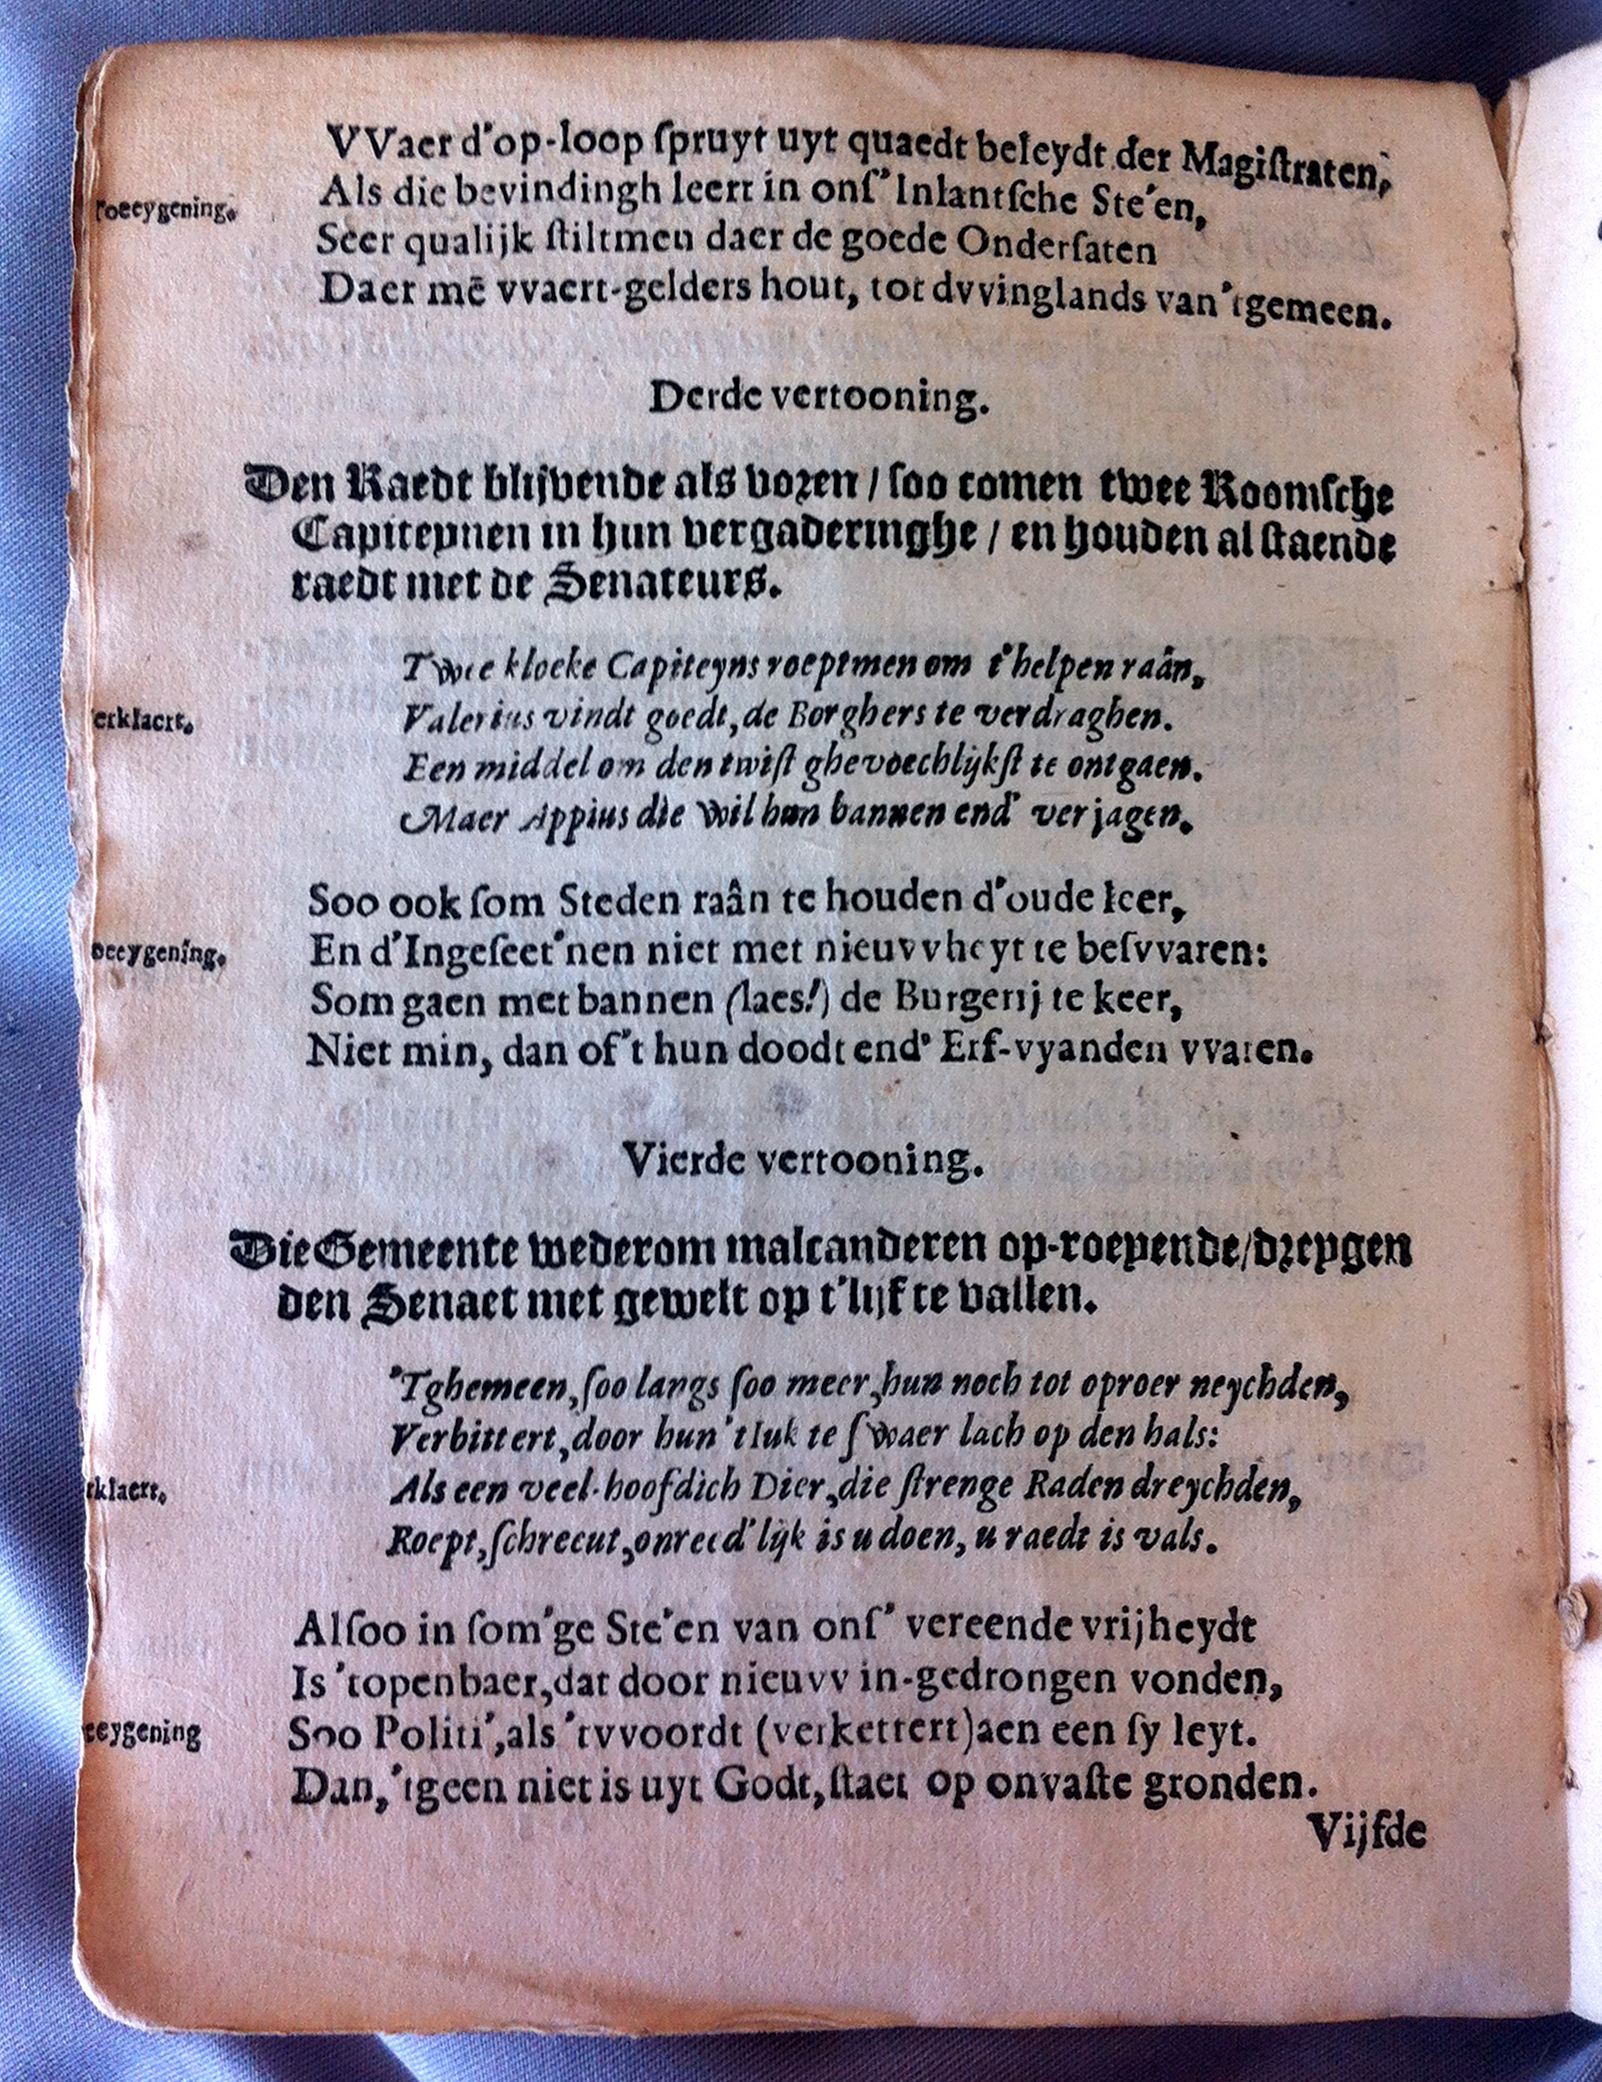 VVaer d'op-loop ſpruyt uyt quaedt beleydt der Magiſtraten,
Als die bevindingh leert in onſ' Inlantſche Ste'en,
Toeeygening.
Seer qualijk ſtiltmen daer de goede Onderſaten
Daer mē vvaert-gelders hout, tot dvvinglands van 'tgemeen.
Derde vertooning.
Den Raedt blijvende als voren / ſoo comen twee Roomſche
Capiteynen in hun vergaderinghe / en houden al ſtaende
raedt met de Senateurs.
Twee kloeke Capiteyns roeptmen om t'helpen raân,
erklaert.
Valerius vindt goedt, de Borghers te verdraghen.
Een middel om den twiſt ghevoechlijkſt te ontgaen.
Maer Appius die wil hun bannen end' verjagen.
Soo ook ſom Steden raân te houden d'oude leer,
oeeygening.
En d'Ingeſeet'nen niet met nieuvvheyt te beſvvaren:
Som gaen met bannen (laes!) de Burgerij te keer,
Niet min, dan of't hun doodt end' Erf-vyanden vvaren.
Vierde vertooning.
Die Gemeente wederom malcanderen op-roepende / dreygen
den Senaet met gewelt op t'lijf te vallen.
'Tghemeen, ſoo langs ſoo meer, hun noch tot oproer neychden,
Verbittert, door hun 't Iuk te ſwaer lach op den hals:
rklaert.
Als een veel-hoofdich Dier, die ſtrenge Raden dreychden,
Roept, ſchreeut, onreed'lijk is u doen, u raedt is vals.
Alſoo in ſom'ge Ste'en van onſ' vereende vrijheydt
Is 'topenbaer, dat door nieuvv in-gedrongen vonden,
eeygening
Soo Politi', als 'tvvoordt (verkettert) aen een ſy leyt.
Dan, 'tgeen niet is uyt Godt, ſtaet op onvaſte gronden.
Vijfde